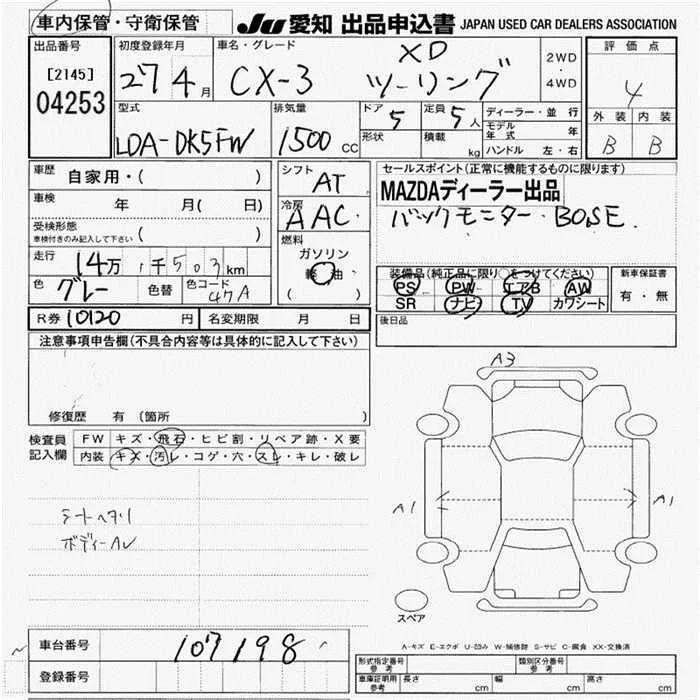 車内保管・守衛保管 JU 愛知 出品申込書 JAPAN USED CAR DEALERS ASSOCIATION
出品番号 [2145] 04253
初度登録年月 27 4月
車名・グレード CX-3 XD ツーリング
2WD・4WD
評価点 4
外装 B 内装 B
型式 LDA-DK5FW
排気量 1500 cc
ドア 5 定員 5人
形状 積載 kg
ディーラー・並行
モデル年式 年
ハンドル 左・右
車歴 自家用・( )
車検 年 月( 日)
受検形態 車検付きのみ記入して下さい ( )
走行 14万 1千503km
色 グレー 色替 色コード 47A
シフト AT
冷房 AAC
燃料 ガソリン 軽油 ( )
セールスポイント(正常に機能するものに限ります)
MAZDAディーラー出品
バックモニター・BOSE.
装備品(純正品に限り○をつけてください)
PS PW エアB AW
SR ナビ TV カワシート
新車保証書 有・無
R券 10120 円 名変期限 月 日
後日品
注意事項申告欄(不具合内容等は具体的に記入して下さい)
修復歴 有(箇所 )
検査員記入欄 FW キズ・飛石・ヒビ割・リペア跡・X要
内装 キズ・汚レ・コゲ・穴・スレ・キレ・破レ
シートヘタリ
ボディーAU
A3
A1 A1
スペア
A-キズ E-エクボ U-凹み W-補修跡 S-サビ C-腐食 XX-交換済
車台番号 107198
登録番号
形式指定番号 参考 類別区分番号 参考
車庫証明用 参考 長さ cm 幅 cm 高さ cm